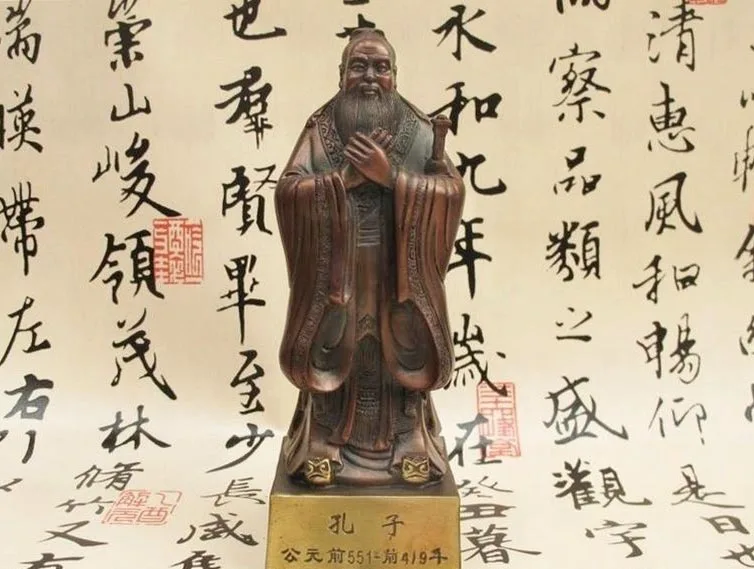 清惠風和暢仰
是日也
察品類之盛觀宇
永和九年歲在癸丑暮
也羣賢畢至少長咸
崇山峻領茂林脩竹又有
湍暎帶左右
孔子
公元前551-前479年